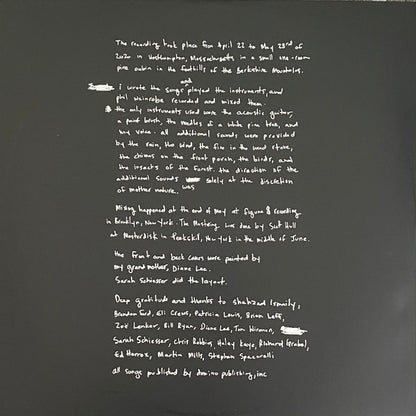 The recording took place from April 22 to May 23rd of
2020 in Westhampton, Massachusetts in a small one-room
pine cabin in the foothills of the Berkshire Mountains.
and
i wrote the songs, played the instruments, and
phil weinrobe recorded and mixed them.
the only instruments used were the acoustic guitar,
a paint brush, the needles of a white pine tree, and
my voice. all additional sounds were provided
by the rain, the wind, the fire in the wood stove,
the chimes on the front porch, the birds, and
the insects of the forest. the direction of the
additional sounds was solely at the discretion
of mother nature.
Mixing happened at the end of may at figure 8 recording
in Brooklyn, New York. The Mastering was done by Scott Hull
at Masterdisk in Peekskill, New York in the middle of June.
the front and back covers were painted by
my grandmother, Diane Lee.
Sarah Schiesser did the layout.
Deep gratitude and thanks to shahzad Ismaily,
Brandon Ford, Eli Crews, Patricia Lewis, Brian Leff,
Zoë Lenker, Bill Ryan, Diane Lee, Tom Wironen,
Sarah Schiesser, Chris Robbins, Haley Kaye, Richard Grabel,
Ed Horrox, Martin Mills, Stephan
all songs published by domino publishing, inc